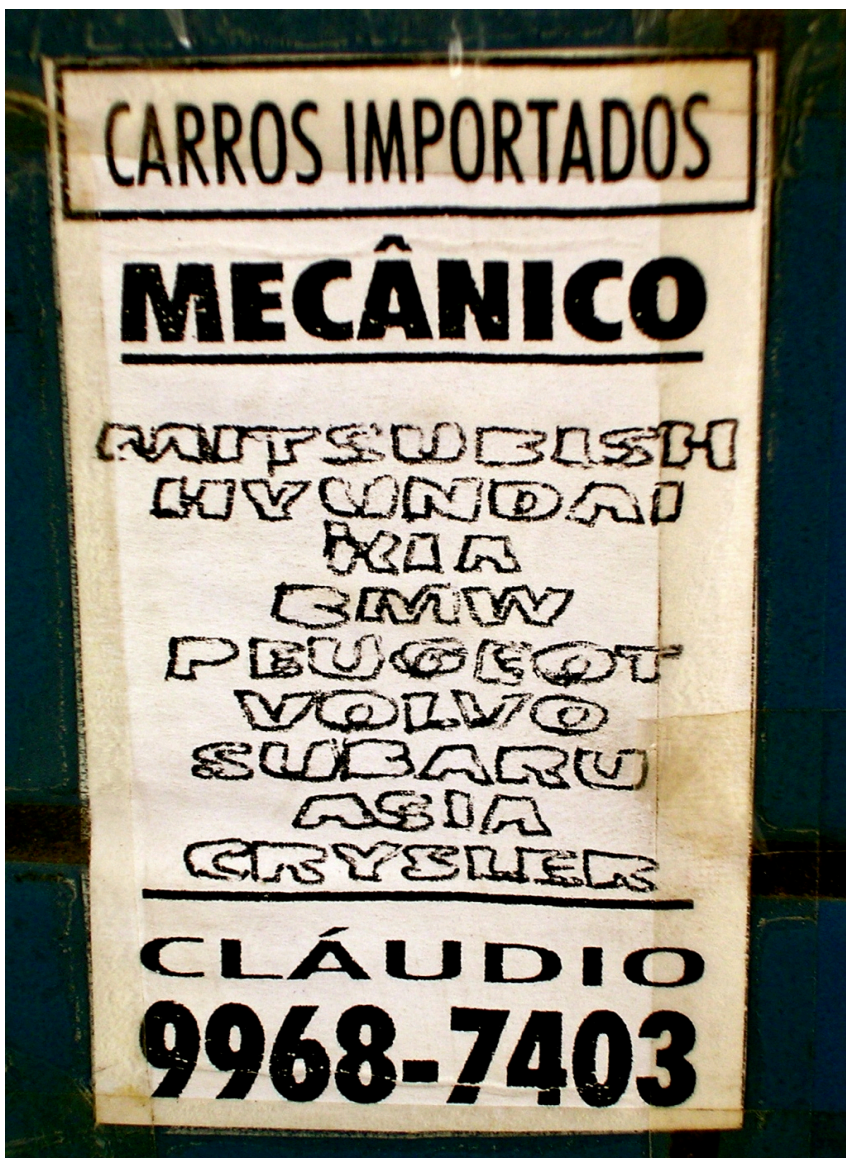 CARROS IMPORTADOS
MECÂNICO
MITSUBISH
HYUNDAI
KIA
BMW
PEUGEOT
VOLVO
SUBARU
ASIA
CRYSLER
CLÁUDIO
9968-7403